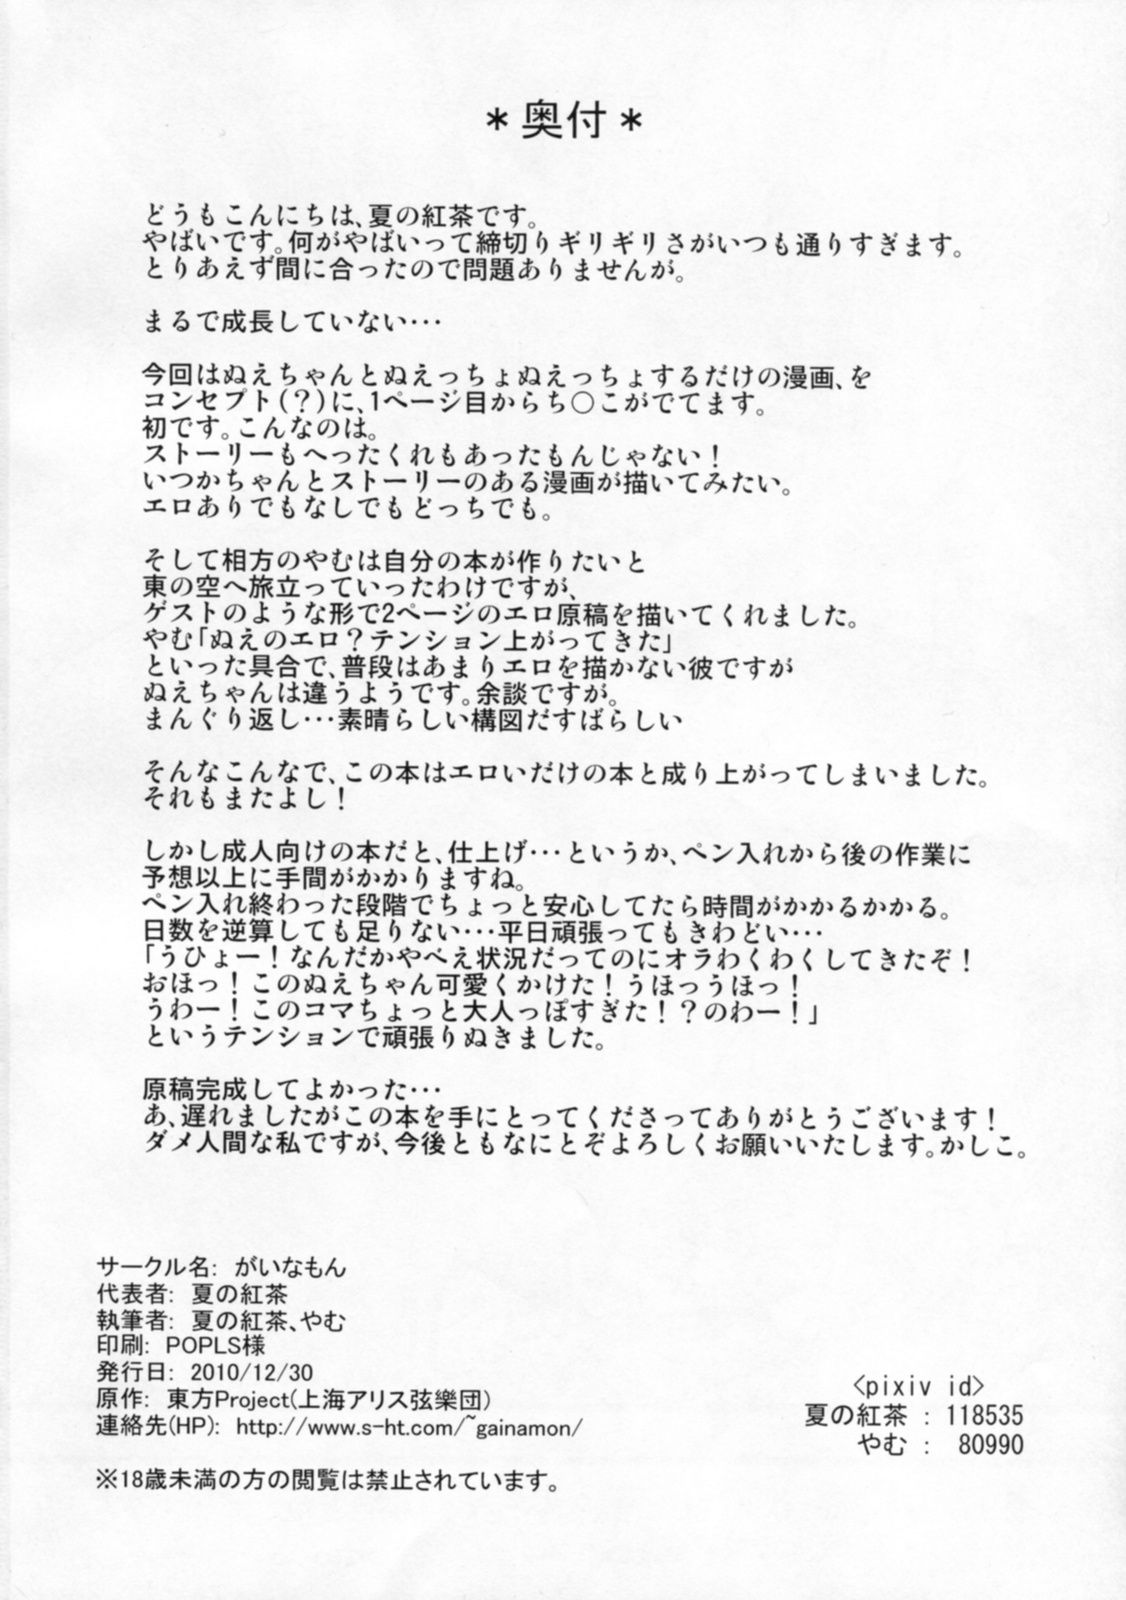 ＊奥付＊
どうもこんにちは、夏の紅茶です。
やばいです。何がやばいって締切りギリギリさがいつも通りすぎます。
とりあえず間に合ったので問題ありませんが。
まるで成長していない・・・
今回はぬえちゃんとぬえっちょぬえっちょするだけの漫画、を
コンセプト(？)に、1ページ目からち○こがでてます。
初です。こんなのは。
ストーリーもへったくれもあったもんじゃない！
いつかちゃんとストーリーのある漫画が描いてみたい。
エロありでもなしでもどっちでも。
そして相方のやむは自分の本が作りたいと
東の空へ旅立っていったわけですが、
ゲストのような形で2ページのエロ原稿を描いてくれました。
やむ「ぬえのエロ？テンション上がってきた」
といった具合で、普段はあまりエロを描かない彼ですが
ぬえちゃんは違うようです。余談ですが。
まんぐり返し・・・素晴らしい構図だすばらしい
そんなこんなで、この本はエロいだけの本と成り上がってしまいました。
それもまたよし！
しかし成人向けの本だと、仕上げ・・・というか、ペン入れから後の作業に
予想以上に手間がかかりますね。
ペン入れ終わった段階でちょっと安心してたら時間がかかるかかる。
日数を逆算しても足りない・・・平日頑張ってもきわどい・・・
「うひょー！なんだかやべえ状況だってのにオラわくわくしてきたぞ！
おほっ！このぬえちゃん可愛くかけた！うほっうほっ！
うわー！このコマちょっと大人っぽすぎた！？のわー！」
というテンションで頑張りぬきました。
原稿完成してよかった・・・
あ、遅れましたがこの本を手にとってくださってありがとうございます！
ダメ人間な私ですが、今後ともなにとぞよろしくお願いいたします。かしこ。
サークル名: がいなもん
代表者: 夏の紅茶
執筆者: 夏の紅茶、やむ
印刷: POPLS様
発行日: 2010/12/30
原作: 東方Project(上海アリス弦樂団)
連絡先(HP): http://www.s-ht.com/~gainamon/
※18歳未満の方の閲覧は禁止されています。
<pixiv id>
夏の紅茶 : 118535
やむ : 80990